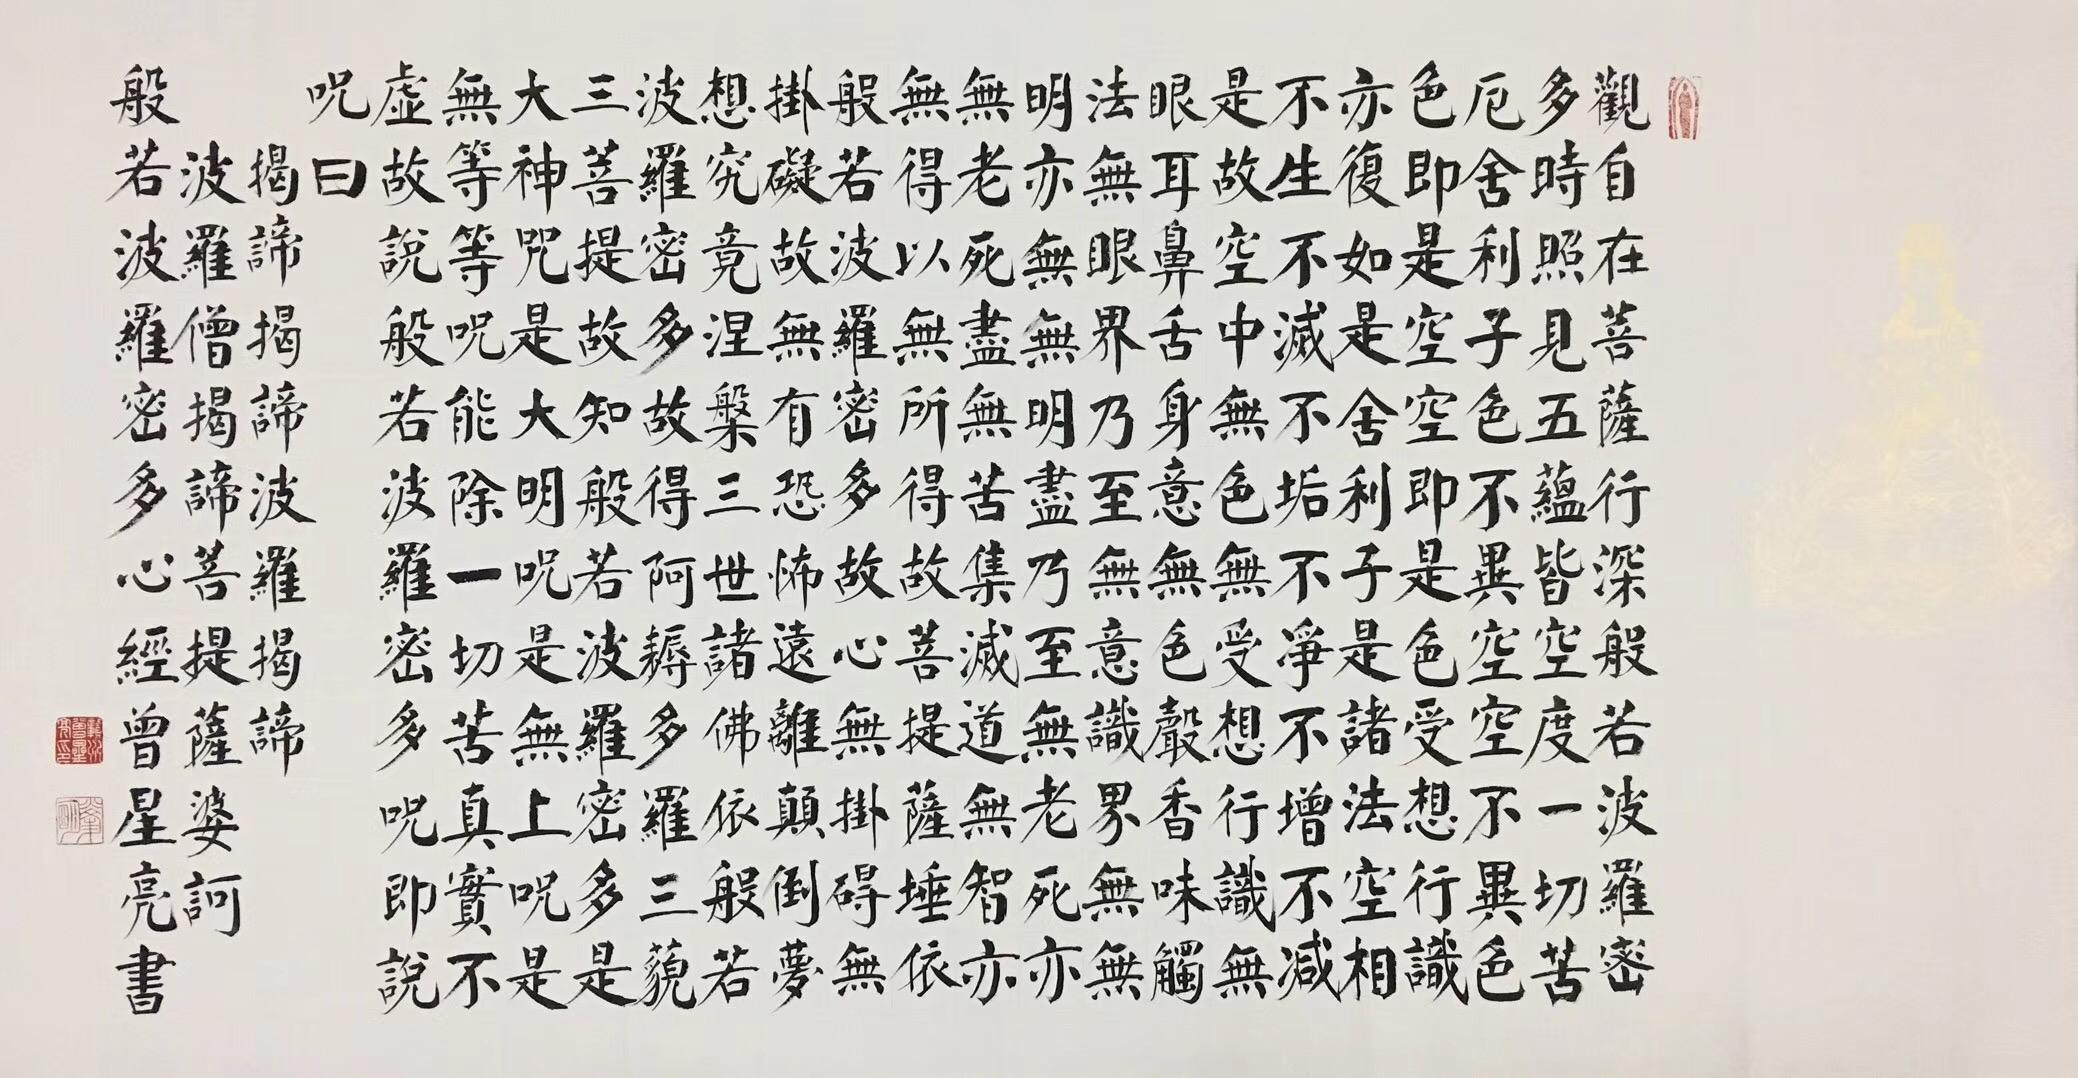 觀自在菩薩行深般若波羅密
多時照見五蘊皆空度一切苦
厄舍利子色不異空空不異色
色即是空空即是色受想行識
亦復如是舍利子是諸法空相
不生不滅不垢不凈不增不減
是故空中無色無受想行識無
眼耳鼻舌身意無色聲香味觸
法無眼界乃至無意識界無無
明亦無無明盡乃至無老死亦
無老死盡無苦集滅道無智亦
無得以無所得故菩提薩埵依
般若波羅密多故心無掛碍無
掛礙故無有恐怖遠離顛倒夢
想究竟涅槃三世諸佛依般若
波羅密多故得阿耨多羅三藐
三菩提故知般若波羅密多是
大神咒是大明呪是無上呪是
無等等呪能除一切苦真實不
虛故說般若波羅密多呪即說
呪曰
揭諦揭諦波羅揭諦
波羅僧揭諦菩提薩婆訶
般若波羅密多心經曾星亮書